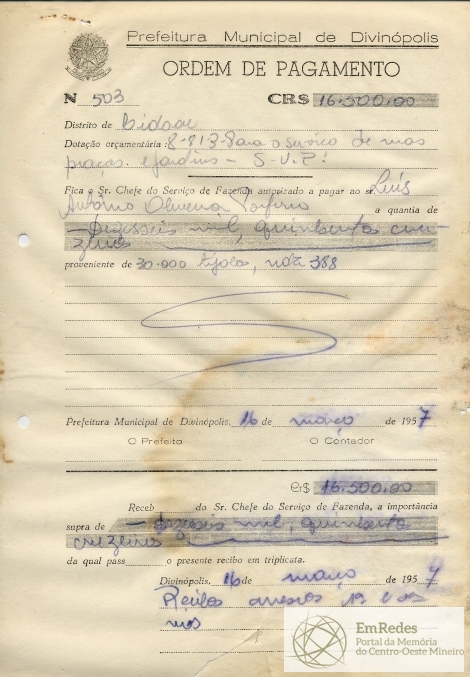 Prefeitura Municipal de Divinópolis
ORDEM DE PAGAMENTO
N 503 CR$ 16.500,00
Distrito de Cidade
Dotação orçamentária: 8-81 3-8 o serviço de ruas
praças e jardins - S-U.P.
Fica o Sr. Chefe do Serviço de Fazenda autorizado a pagar ao sr. Luís
Antônio Oliveira Porfirio a quantia de
- Dezesseis mil, quinhentos cru-
zeiros
proveniente de 30.000 tijolos, nota 388
Prefeitura Municipal de Divinópolis, 16 de março de 1957
O Prefeito O Contador
Cr$ 16.500,00
Receb do Sr. Chefe do Serviço de Fazenda, a importância
supra de - Dezesseis mil, quinhentos
cruzeiros
da qual pass o presente recibo em triplicata.
Divinópolis, 16 de março de 1957
Recibos anexos
EmRedes
Portal da Memória
do Centro-Oeste Mineiro